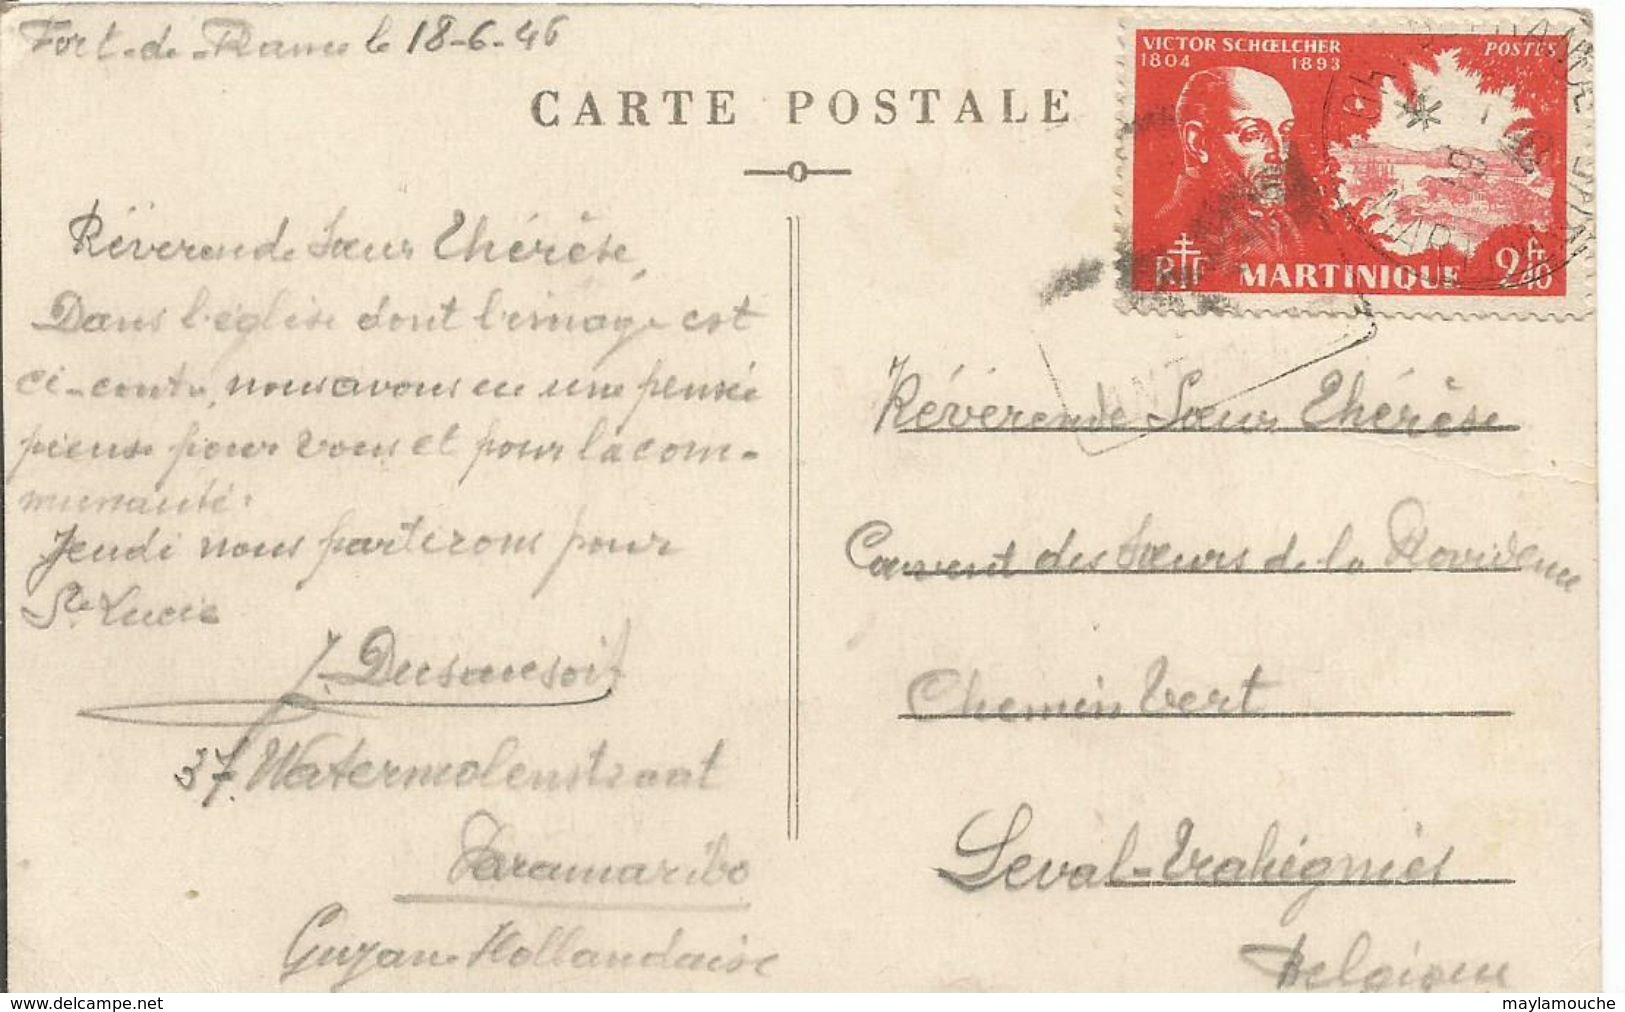 Fort-de-France le 18-6-46
CARTE POSTALE
VICTOR SCHŒLCHER
1804 1893
POSTES
RF MARTINIQUE 2f10
Révérende Sœur Thérèse,
Dans l'église dont l'image est
ci-contre, nous avons eu une pensée
pieuse pour vous et pour la com-
munauté.
Jeudi nous partirons pour
Ste Lucie
J. Dusausoit
37, Watermolenstraat
Paramaribo
Guyane Hollandaise
Révérende Sœur Thérèse
Couvent des Sœurs de la Providence
Chemin Vert
Leval-Trahegnies
Belgique
www.delcampe.net
maylamouche